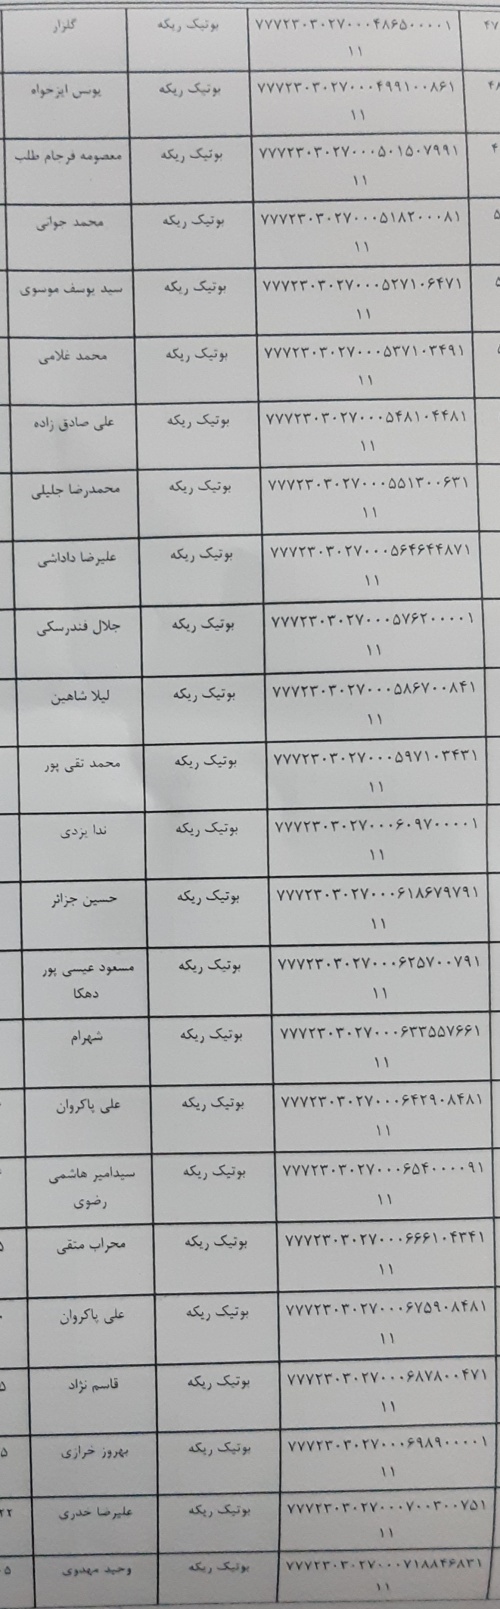 ۴۷ ۷۷۷۲۳۰۳۰۲۷۰۰۰۴۸۶۵۰۰۰۰۱ بوتیک ریکه گلزار
۱۱
۷۷۷۲۳۰۳۰۲۷۰۰۰۴۹۹۱۰۰۸۶۱ بوتیک ریکه یونس ایزخواه
۱۱
۷۷۷۲۳۰۳۰۲۷۰۰۰۵۰۱۵۰۷۹۹۱ بوتیک ریکه معصومه فرجام طلب
۱۱
۷۷۷۲۳۰۳۰۲۷۰۰۰۵۱۸۲۰۰۰۸۱ بوتیک ریکه محمد جوانی
۱۱
۷۷۷۲۳۰۳۰۲۷۰۰۰۵۲۷۱۰۶۴۷۱ بوتیک ریکه سید یوسف موسوی
۱۱
۷۷۷۲۳۰۳۰۲۷۰۰۰۵۳۷۱۰۳۴۹۱ بوتیک ریکه محمد غلامی
۱۱
۷۷۷۲۳۰۳۰۲۷۰۰۰۵۴۸۱۰۴۴۸۱ بوتیک ریکه علی صادق زاده
۱۱
۷۷۷۲۳۰۳۰۲۷۰۰۰۵۵۱۳۰۰۶۳۱ بوتیک ریکه محمدرضا جلیلی
۱۱
۷۷۷۲۳۰۳۰۲۷۰۰۰۵۶۴۶۴۴۸۷۱ بوتیک ریکه علیرضا داداشی
۱۱
۷۷۷۲۳۰۳۰۲۷۰۰۰۵۷۶۲۰۰۰۰۱ بوتیک ریکه جلال فندرسکی
۱۱
۷۷۷۲۳۰۳۰۲۷۰۰۰۵۸۶۷۰۰۸۴۱ بوتیک ریکه لیلا شاهین
۱۱
۷۷۷۲۳۰۳۰۲۷۰۰۰۵۹۷۱۰۳۴۳۱ بوتیک ریکه محمد تقی پور
۱۱
۷۷۷۲۳۰۳۰۲۷۰۰۰۶۰۹۷۰۰۰۰۱ بوتیک ریکه ندا یزدی
۱۱
۷۷۷۲۳۰۳۰۲۷۰۰۰۶۱۸۶۷۹۷۹۱ بوتیک ریکه حسین جزائر
۱۱
۷۷۷۲۳۰۳۰۲۷۰۰۰۶۲۵۷۰۰۷۹۱ بوتیک ریکه مسعود عیسی پور
۱۱ دهکا
۷۷۷۲۳۰۳۰۲۷۰۰۰۶۳۳۵۵۷۶۶۱ بوتیک ریکه شهرام
۱۱
۷۷۷۲۳۰۳۰۲۷۰۰۰۶۴۲۹۰۸۴۸۱ بوتیک ریکه علی پاکروان
۱۱
۷۷۷۲۳۰۳۰۲۷۰۰۰۶۵۴۰۰۰۰۹۱ بوتیک ریکه سیدامیر هاشمی
۱۱ رضوی
۷۷۷۲۳۰۳۰۲۷۰۰۰۶۶۶۱۰۴۳۴۱ بوتیک ریکه محراب متقی
۱۱
۷۷۷۲۳۰۳۰۲۷۰۰۰۶۷۵۹۰۸۴۸۱ بوتیک ریکه علی پاکروان
۱۱
۷۷۷۲۳۰۳۰۲۷۰۰۰۶۸۷۸۰۰۴۷۱ بوتیک ریکه قاسم نژاد
۱۱
۷۷۷۲۳۰۳۰۲۷۰۰۰۶۹۸۹۰۰۰۰۱ بوتیک ریکه بهروز خرازی
۱۱
۷۷۷۲۳۰۳۰۲۷۰۰۰۷۰۰۳۰۰۷۵۱ بوتیک ریکه علیرضا حدری
۱۱
۷۷۷۲۳۰۳۰۲۷۰۰۰۷۱۸۸۴۶۸۳۱ بوتیک ریکه وحید مهدوی
۱۱